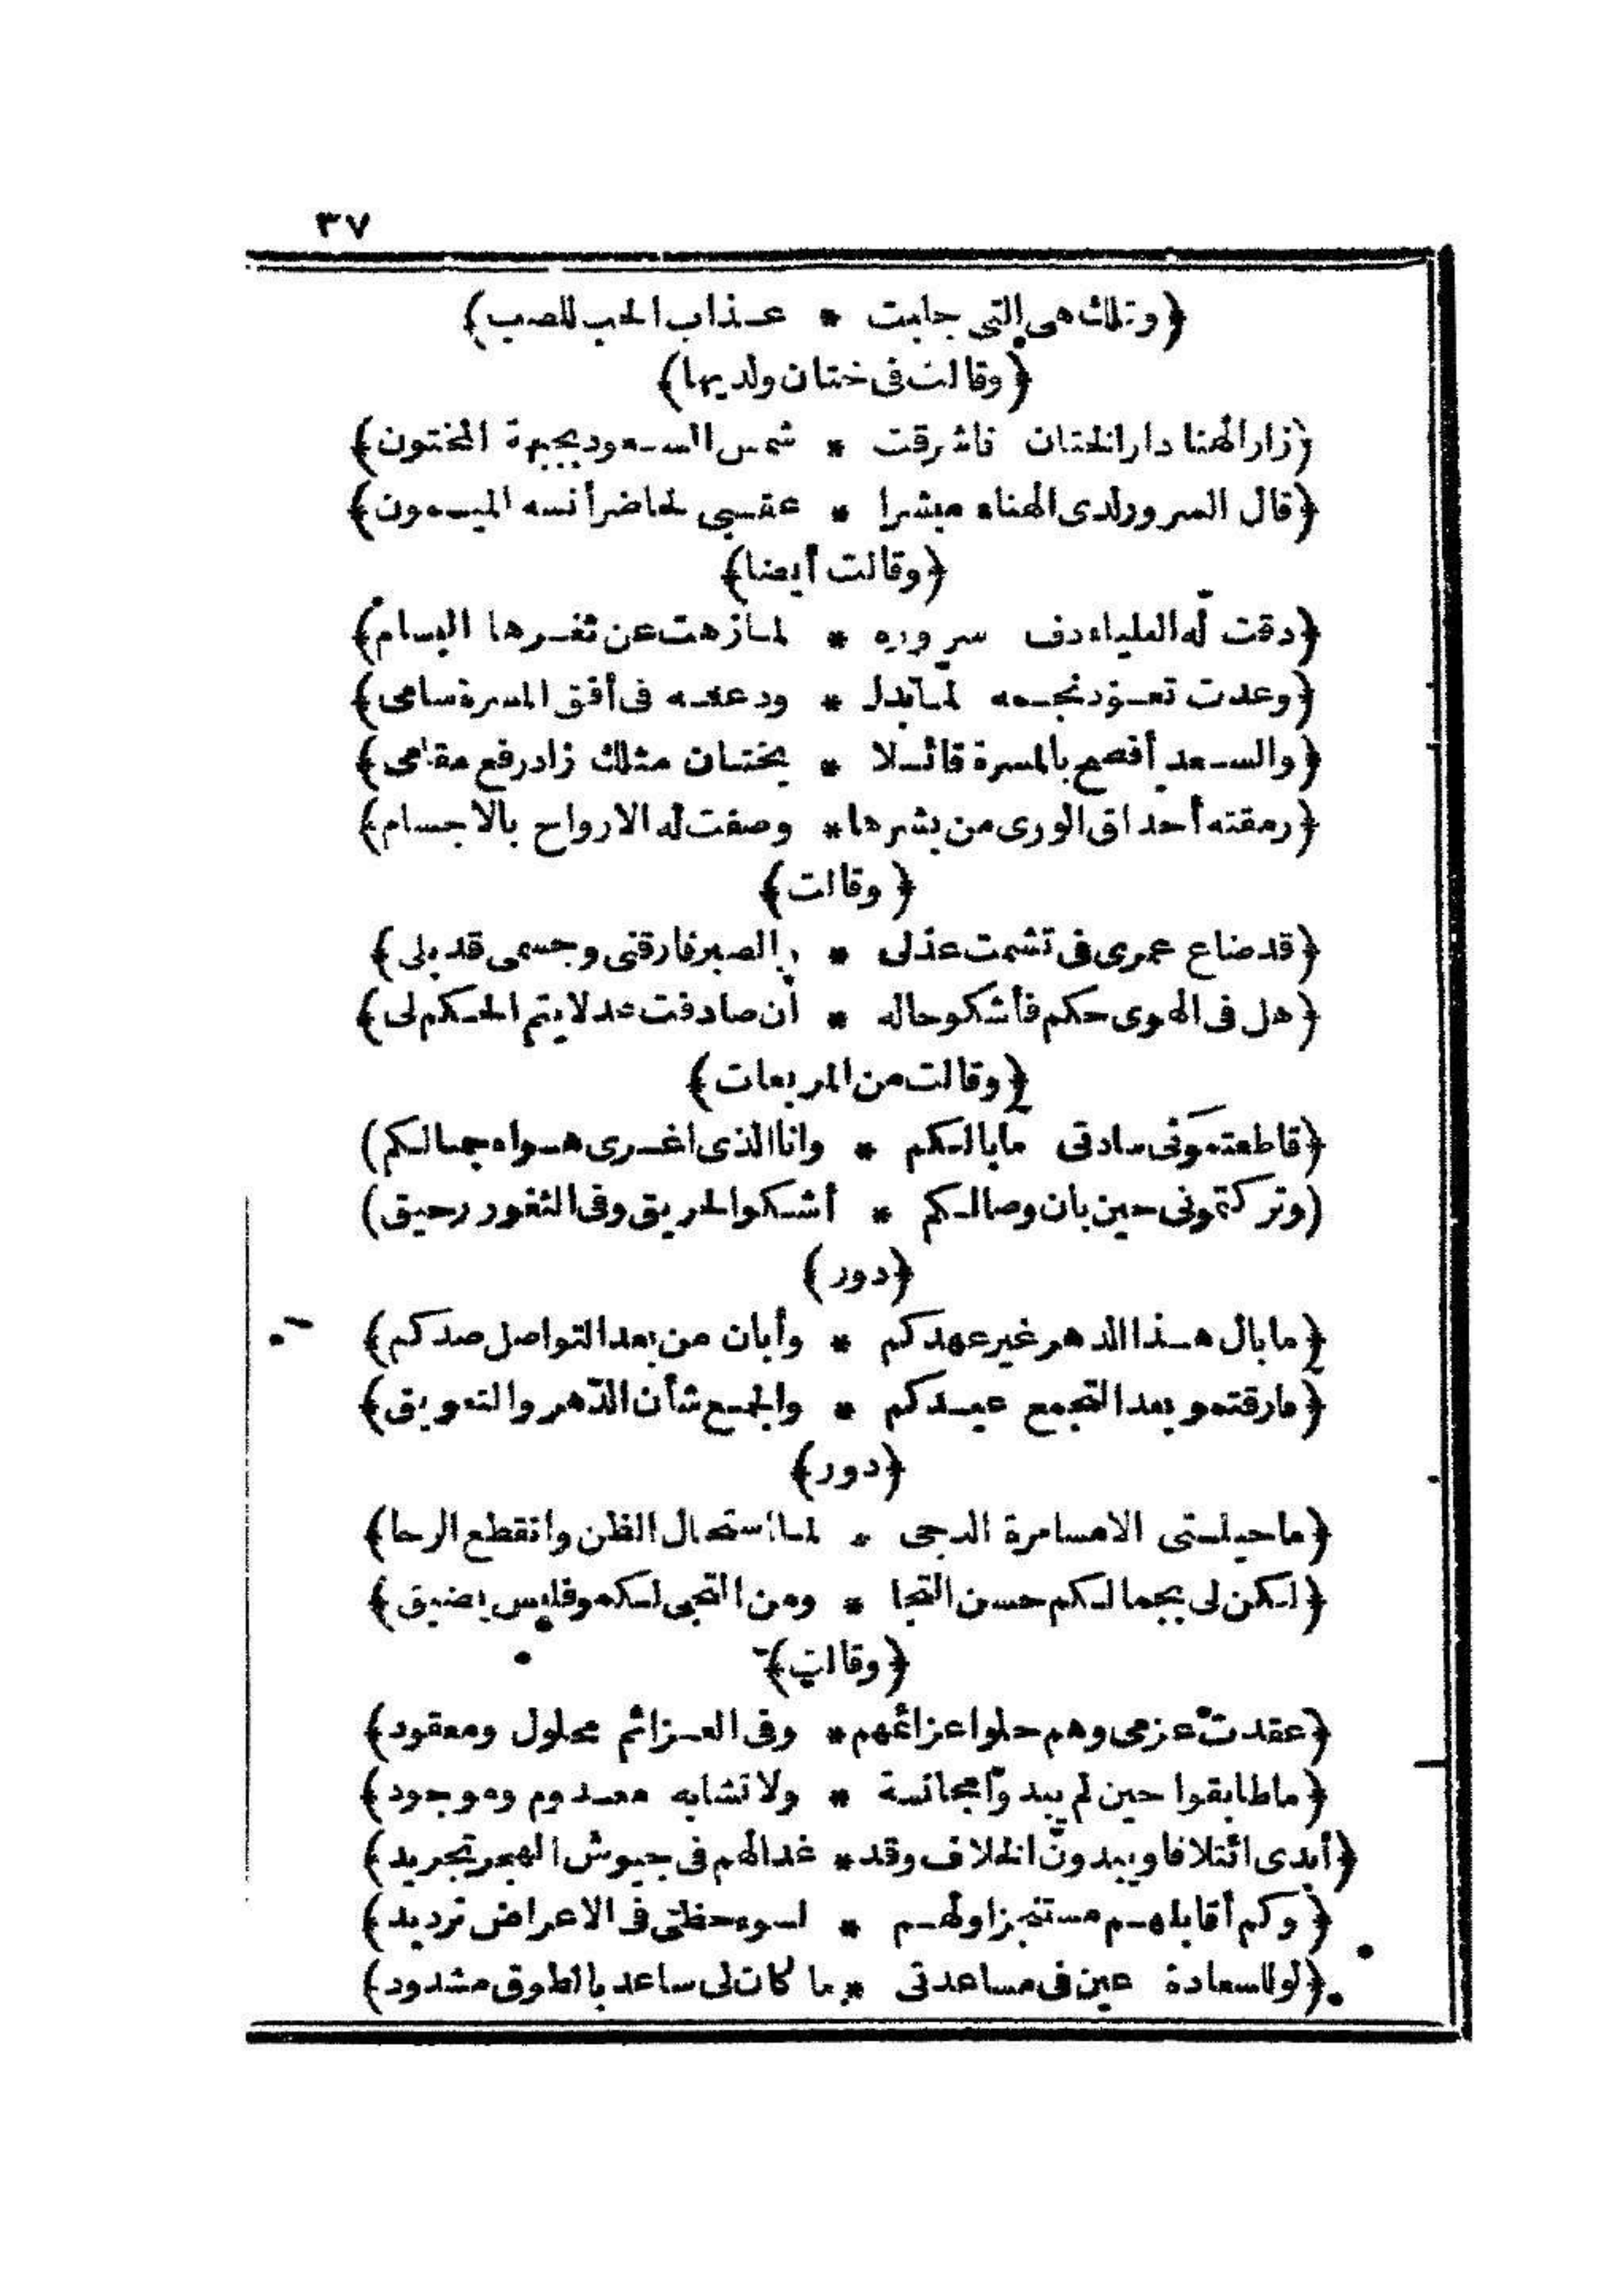 ٣٧
﴿وتلك هى التى جلبت * عذاب الحب للصب﴾
﴿وقالت فى ختان ولديها﴾
﴿زار الهنا دار الختان فاشرقت * شمس السعود بجبهة المختون﴾
﴿قال السرور لدى الهناء مبشرا * عقبى لحاضر أنسه الميمون﴾
﴿وقالت أيضا﴾
﴿دقت له العلياء دف سروره * لما زهت عن ثغرها البسام﴾
﴿وغدت تعوّذ نجمه لما بدا * ودعته فى أفق المسرة سامى﴾
﴿والسعد أفصح بالمسرة قائلا * بختان مثلك زاد رفع مقامى﴾
﴿رمقته أحداق الورى من بشرها * وصفت له الارواح بالاجسام﴾
﴿وقالت﴾
﴿قد ضاع عمرى فى تشمت عذلى * والصبر فارقنى وجسمى قد بلى﴾
﴿هل فى الهوى حكم فأشكو حاله * أن صادفت عدلا يتم الحكم لى﴾
﴿وقالت من المربعات﴾
﴿قاطعتمونى سادتى ما بالكم * وانا الذى اغرى هواه جمالكم﴾
﴿وتركتمونى حين بان وصالكم * أشكو الحريق وفى الثغور رحيق﴾
﴿دور﴾
﴿ما بال هذا الدهر غير عهدكم * وأبان من بعد التواصل صدكم﴾
﴿فارقتمو بعد التجمع عبدكم * والجمع شأن الدّهر والتعويق﴾
﴿دور﴾
﴿ما حيلتى الا مسامرة الدجى * لما استحال الظن وانقطع الرجا﴾
﴿لكن لى بجمالكم حسن التجا * ومن التجى لكمو فليس بضيق﴾
﴿وقالت﴾
﴿عقدت عزمى وهم حلوا عزائمهم * وفى العزائم محلول ومعقود﴾
﴿ما طابقوا حين لم يبدوا مجانسة * ولا تشابه معدوم وموجود﴾
﴿أبدى ائتلافا ويبدون الخلاف وقد * غدا لهم فى جيوش الهجر تجريد﴾
﴿وكم أقابلهم مستنجزا ولهم * لسوء حظى فى الاعراض ترديد﴾
﴿لو للسعادة عين فى مساعدتى * ما كان لى ساعد بالطوق مشدود﴾